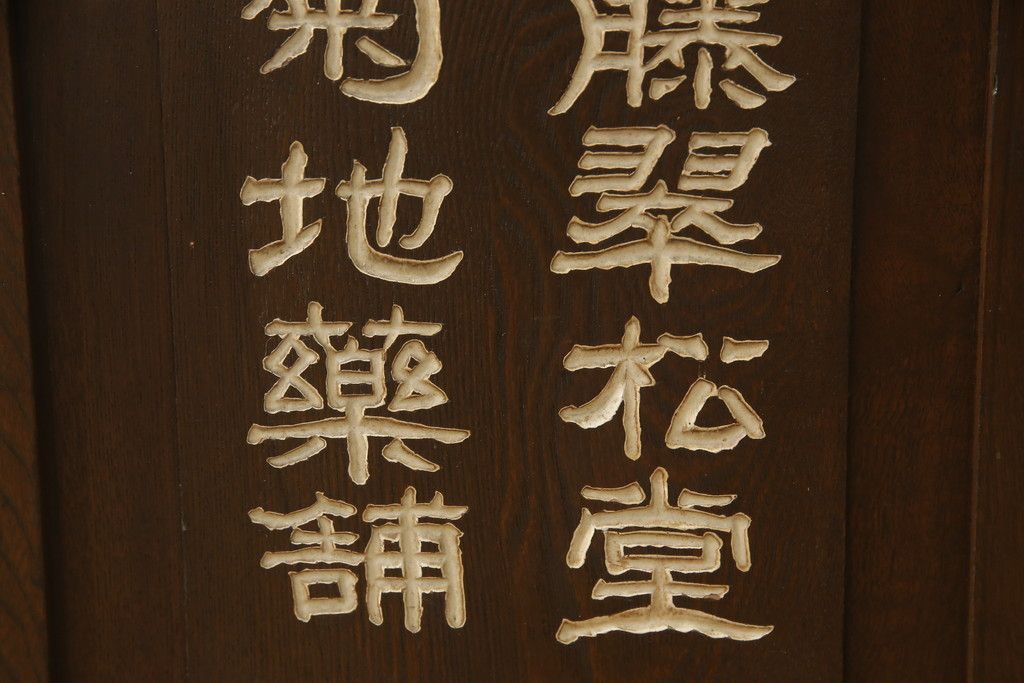 藤翠松堂
菊地藥舖